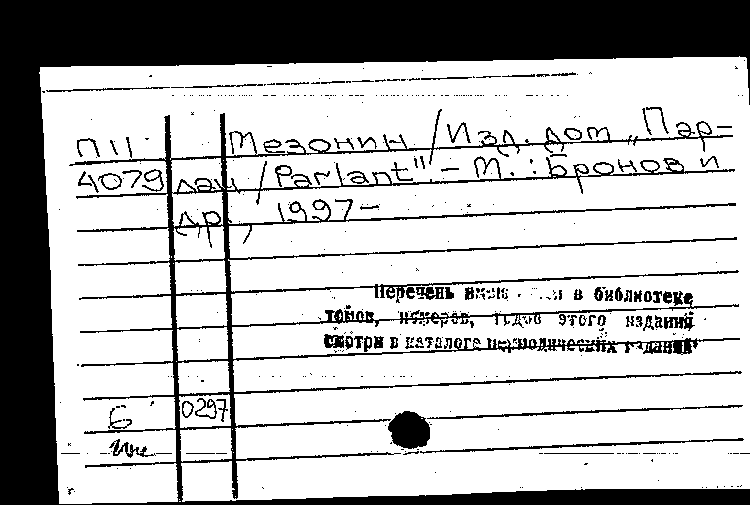 П11 Мезонин / Изд. дом „Пар-
4079 лан / Parlant". - М. : Бронов и
др., 1997-
Перечень в библиотеке
томов, номеров, годов этого издания
смотри в каталоге периодических изданий
Б 0297